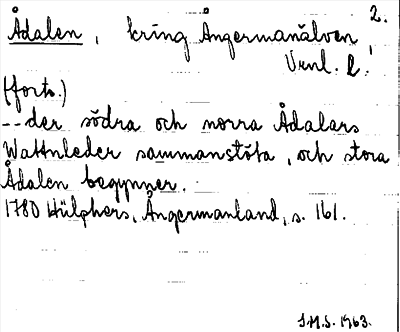 2.
Ådalen, kring Ångermanälven,
Vrnl. L.
(forts.)
--der södra och norra Ådalars
Wattnleder sammanstöta, och stora
Ådalen begynner.
1780 Hülphers, Ångermanland, s. 161.
S.M.S. 1963.